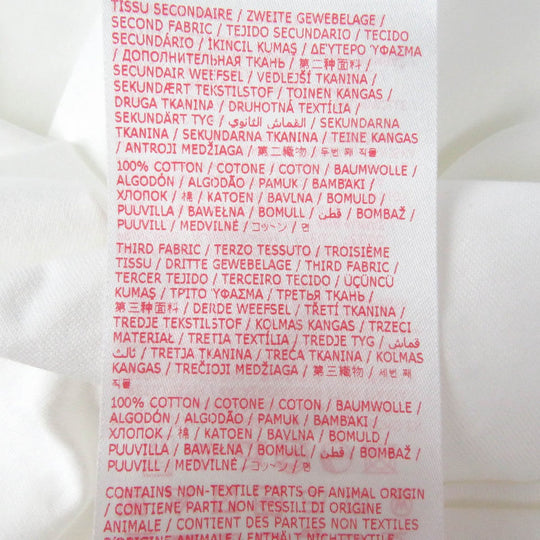 TISSU SECONDAIRE / ZWEITE GEWEBELAGE /
SECOND FABRIC / TEJIDO SECUNDARIO / TECIDO
SECUNDÁRIO / İKINCIL KUMAŞ / ΔΕΎΤΕΡΟ ΎΦΑΣΜΑ
/ ДОПОЛНИТЕЛЬНАЯ ТКАНЬ / 第二种面料 /
SECUNDAIR WEEFSEL / VEDLEJŠÍ TKANINA /
SEKUNDÆRT TEKSTILSTOF / TOINEN KANGAS /
DRUGA TKANINA / DRUHOTNÁ TEXTÍLIA /
SEKUNDÄRT TYG / القماش الثانوي / SEKUNDARNA
TKANINA / SEKUNDARNA TKANINA / TEINE KANGAS
/ ANTROJI MEDŽIAGA / 第二織物 / 두번 째 직물
100% COTTON / COTONE / COTON / BAUMWOLLE /
ALGODÓN / ALGODÃO / PAMUK / ΒΑΜΒΆΚΙ /
ХЛОПОК / 棉 / KATOEN / BAVLNA / BOMULD /
PUUVILLA / BAWEŁNA / BOMULL / قطن / BOMBAŽ /
PUUVILL / MEDVILNĖ / コットン / 면
THIRD FABRIC / TERZO TESSUTO / TROISIÈME
TISSU / DRITTE GEWEBELAGE / THIRD FABRIC /
TERCER TEJIDO / TERCEIRO TECIDO / ÜÇÜNCÜ
KUMAŞ / ΤΡΙΤΟ ΎΦΑΣΜΑ / ТРЕТЬЯ ТКАНЬ /
第三种面料 / DERDE WEEFSEL / TŘETÍ TKANINA /
TREDJE TEKSTILSTOF / KOLMAS KANGAS / TRZECI
MATERIAŁ / TRETIA TEXTÍLIA / TREDJE TYG / قماش
ثالث / TRETJA TKANINA / TREĆA TKANINA / KOLMAS
KANGAS / TREČIOJI MEDŽIAGA / 第三織物 / 세번 째
직물
100% COTTON / COTONE / COTON / BAUMWOLLE /
ALGODÓN / ALGODÃO / PAMUK / ΒΑΜΒΆΚΙ /
ХЛОПОК / 棉 / KATOEN / BAVLNA / BOMULD /
PUUVILLA / BAWEŁNA / BOMULL / قطن / BOMBAŽ /
PUUVILL / MEDVILNĖ / コットン / 면
CONTAINS NON-TEXTILE PARTS OF ANIMAL ORIGIN
/ CONTIENE PARTI NON TESSILI DI ORIGINE
ANIMALE / CONTIENT DES PARTIES NON TEXTILES
D'ORIGINE ANIMALE / ENTHÄLT NICHTTEXTILE